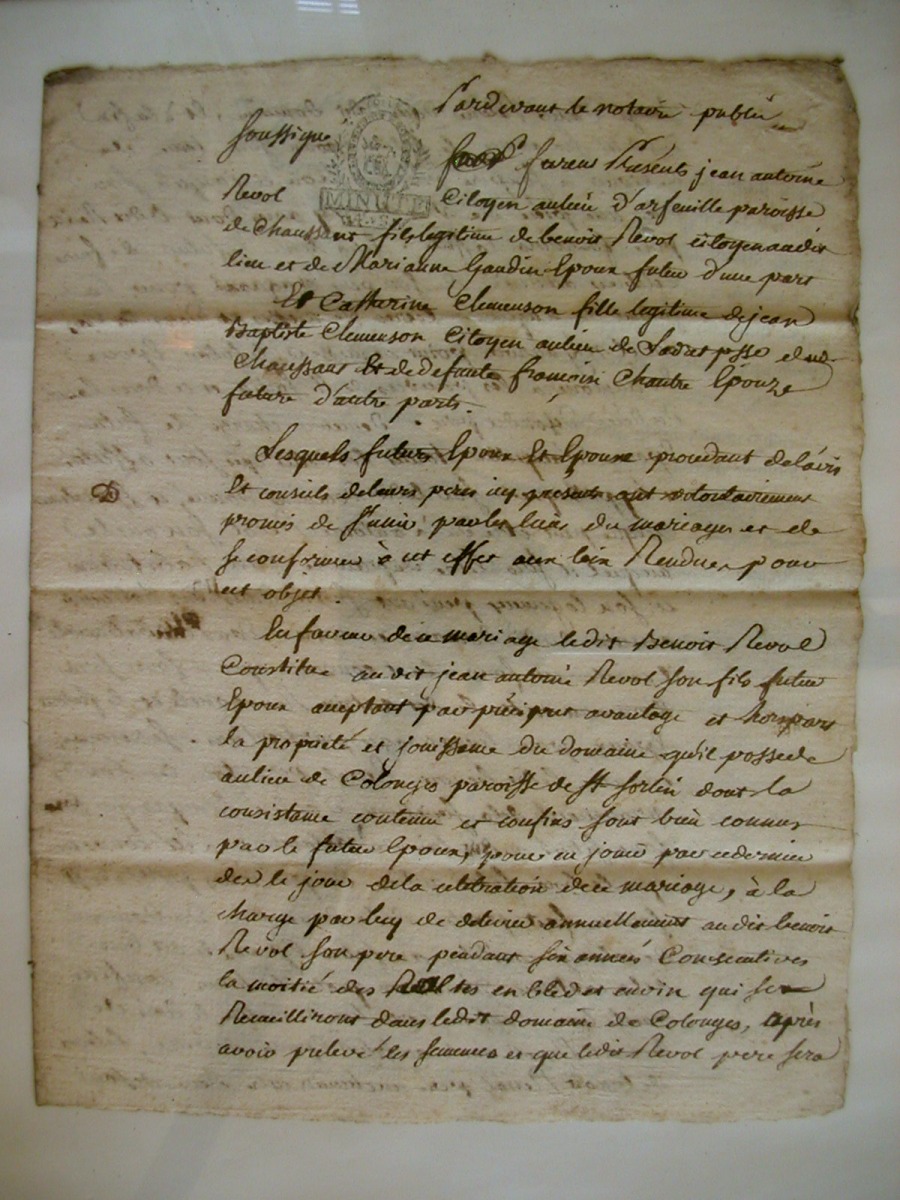 Pardevant le notaire public
soussigné
furent Présents jean antoine
Revol Citoyen aulieu d'arfeuille paroisse
MINUTE
de Chaussant fils legitime de benoit Revol citoyen audit
lieu et de Marianne Gaudin Epoux futur d'une part
Et Catherine Clemenson fille legitime de jean
Baptiste Clemenson Citoyen aulieu de psse
Chaussant Et de defunte francoise Chantre Epouze
future d'autre parts.
Lesquels futurs Epoux Et Epouse procedant de lavis
Et conseils de leurs peres icy presents ont volontairement
promis de S'unir par les liens du mariages et de
se conformer à cet effet aux loix Rendues pour
cet objet.
En faveur de ce mariage ledit Benoit Revol
Constitue audit jean antoine Revol son fils futur
Epoux acceptant par préciput avantage et horspart
la propriété et jouissance du domaine qu'il possede
aulieu de Colonges paroisse de St Sorlin dont la
consistance contenue et confins sont bien connus
par le futur Epoux, pour en jouir par cedernier
des le jour de la celebration de ce mariage, à la
charge par luy de delivrer annuellement audit benoit
Revol son pere pendant six années Consecutives
la moitié des en bled et en vin qui se
Recueilliront dans ledit domaine de Colonges, après
avoir prelevé les semences et que ledit Revol pere sera